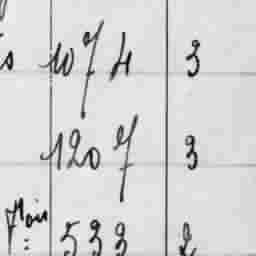 1074 3
1207 3
533 2